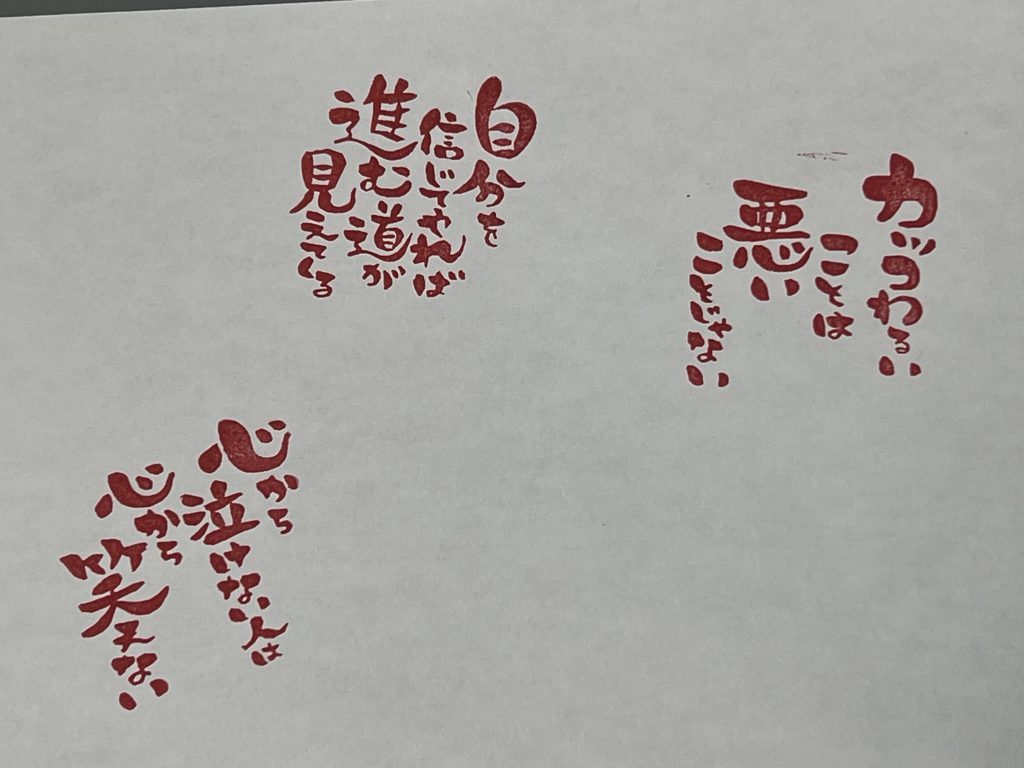 カッコわるい
ことは
悪い
ことじゃない
自分を
信じてやれば
進む道が
見えてくる
心から
泣けない人は
心から
笑えない